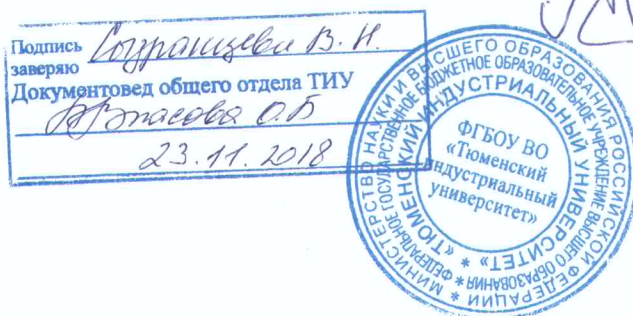 Подпись
заверяю
В. Н.
Документовед общего отдела ТИУ
Власова О.Б
23.11.2018
МИНИСТЕРСТВО НАУКИ И ВЫСШЕГО ОБРАЗОВАНИЯ РОССИЙСКОЙ ФЕДЕРАЦИИ *
ФЕДЕРАЛЬНОЕ ГОСУДАРСТВЕННОЕ БЮДЖЕТНОЕ ОБРАЗОВАТЕЛЬНОЕ УЧРЕЖДЕНИЕ ВЫСШЕГО ОБРАЗОВАНИЯ *
«ТЮМЕНСКИЙ ИНДУСТРИАЛЬНЫЙ УНИВЕРСИТЕТ» *
ФГБОУ ВО
«Тюменский
индустриальный
университет»